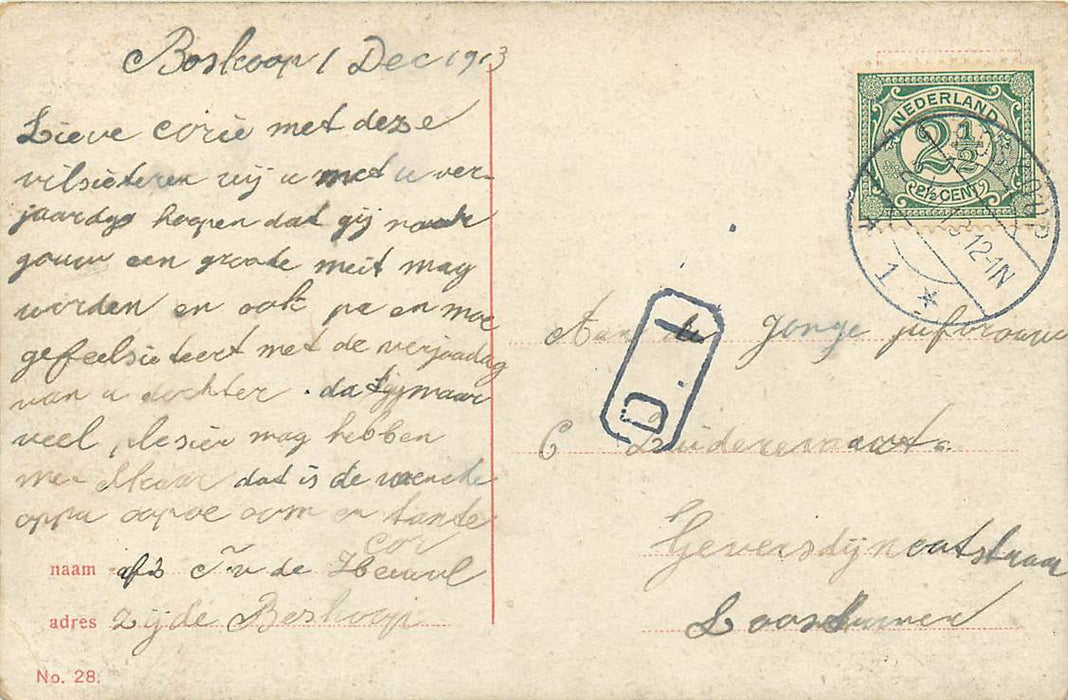 Boskoop 1 Dec 1913
Lieve corie met deze
vilsieteren wij u met u ver-
jaardgs hoopen dat gij noch
gouw een groote meit mag
worden en ook pa en moe
gefeelsieteert met de verjaadag
van u dochter. dat gij maar
veel plesier mag hebben
met elkaar dat is de wensche
oppa oopoe oom en tante
cor
naam afz J v de Heuvel
adres Zijde Boskoop
No. 28.
NEDERLAND
2 1/2
2½ CENT
BOSKOOP
13 12-1N
1
D.I
Aan de Jonge jufvrouw
C Zuiderevaart
Geversdijnootstraat
Loosduinen